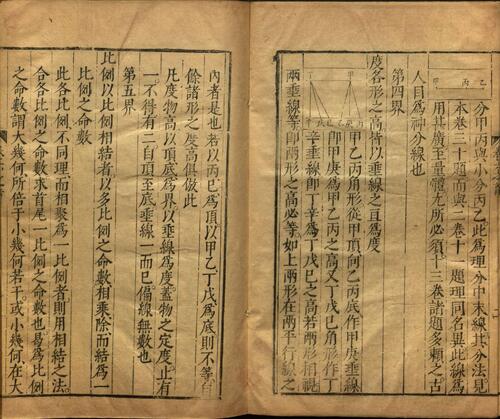 乙丙甲
分甲丙與小分丙乙此為理分中末線其分法見
本卷三十題而與二卷十一題理同名異此線為
用甚廣至量體尤所必須十三卷諸題多賴之古
人目為神分線也
第四界
度各形之高皆以垂線之亘為度
甲乙丙角形從甲頂向乙丙底作甲庚垂線
即甲庚為甲乙丙之高又丁戊己角形作丁
辛垂線即丁辛為丁戊己之高若兩形相視
兩垂線等即兩形之高必等如上兩形在兩平行線之
內者是也若以丙己為頂以甲乙丁戊為底則不等自
餘諸形之度高俱倣此
凡度物高以頂底為界以垂線為度蓋物之定度止有
一不得有二自頂至底垂線一而已偏線無數也
第五界
比例以比例相結者以多比例之命數相乘除而結為一
比例之命數
此各比例不同理而相聚為一比例者則用相結之法
合各比例之命數求首尾一比例之命數也曷為比例
之命數謂大幾何所倍于小幾何若干或小幾何在大